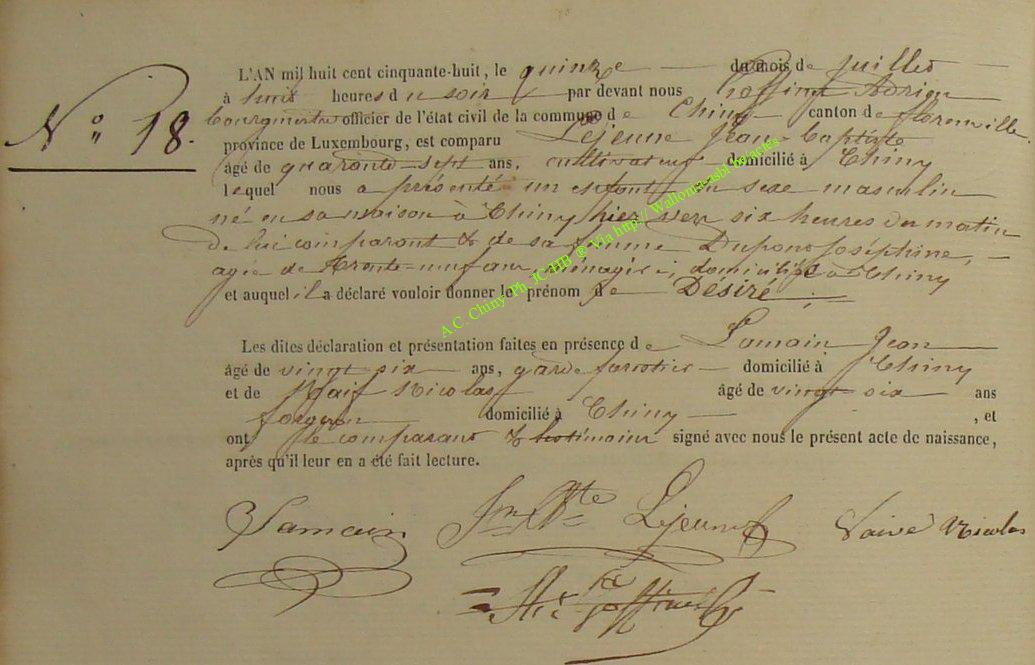 N° 18.
L'AN mil huit cent cinquante-huit, le quinze du mois de juillet
à huit heures du soir par devant nous Goffinet Adrien
bourgmestre officier de l'état civil de la commune de Chiny canton de florenville
province de Luxembourg, est comparu Lejeune Jean-Baptiste
âgé de quarante-sept ans, cultivateur domicilié à Chiny
lequel nous a présenté un enfant du sexe masculin
né en sa maison à Chiny hier vers six heures du matin
de lui comparant & de sa femme Dupont Joséphine,
agée de trente-neuf ans ménagère, domiciliée à Chiny
et auquel il a déclaré vouloir donner le prénom de Désiré
Les dites déclaration et présentation faites en présence de Lamain Jean
âgé de vingt six ans, garde forestier domicilié à Chiny
et de Nicolas âgé de vingt six ans
forgeron domicilié à Chiny , et
ont le comparant & les témoins signé avec nous le présent acte de naissance,
après qu'il leur en a été fait lecture.
Jn Bte Lejeune Nicolas
Goffinet
A.C. Chiny. Ph. JC-HB @ Via http// Wallonia asbl